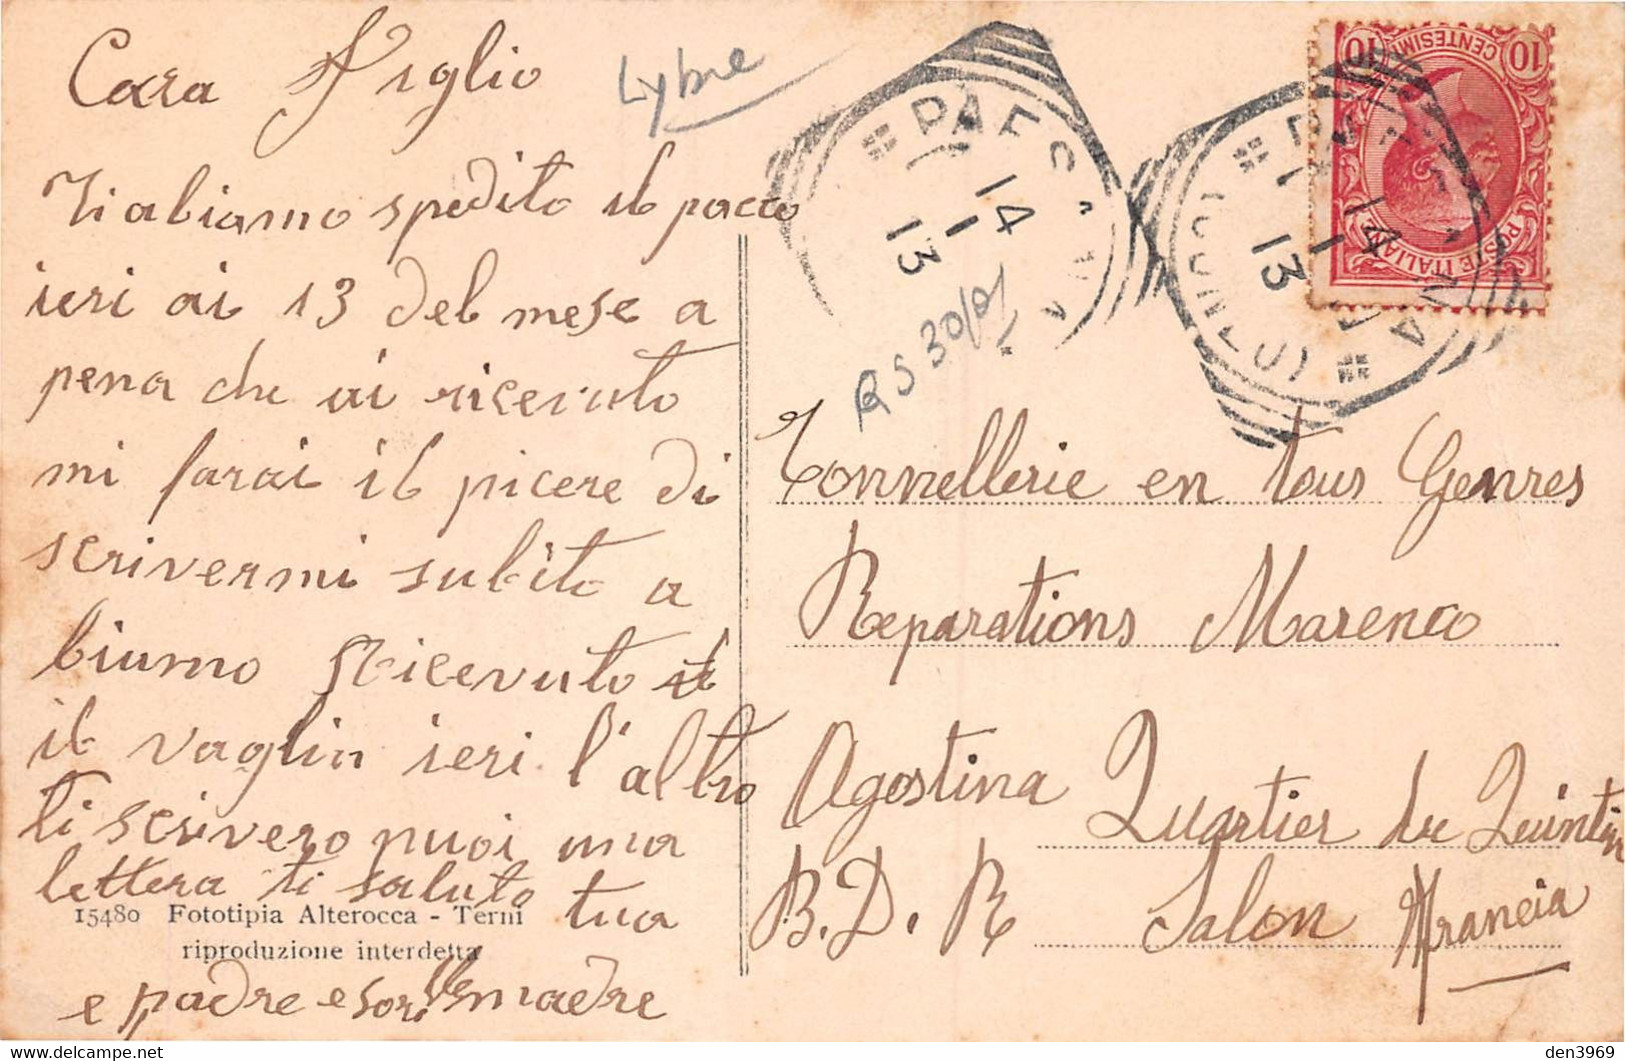 Cara Figlio
Ti abiamo spedito il pacco
ieri ai 13 del mese a
pena che ai ricevuto
mi farai il picere di
scrivermi subito a
biumo Ricevuto il
il vaglia ieri l'altro
ti scrivero puoi una
lettera ti saluto tua
e padre e sorelle madre
15480 Fototipia Alterocca - Terni
riproduzione interdetta
Lybie
RS 30/01
PAESANA
14
1
13
PAESANA
(CUNEO)
14
1
13
10 CENTESIMI 10
POSTE ITALIANE
Tonnellerie en tous Genres
Reparations Marenco
Agostina Quartier de Quintin
B.D.R Salon Francia
den3969